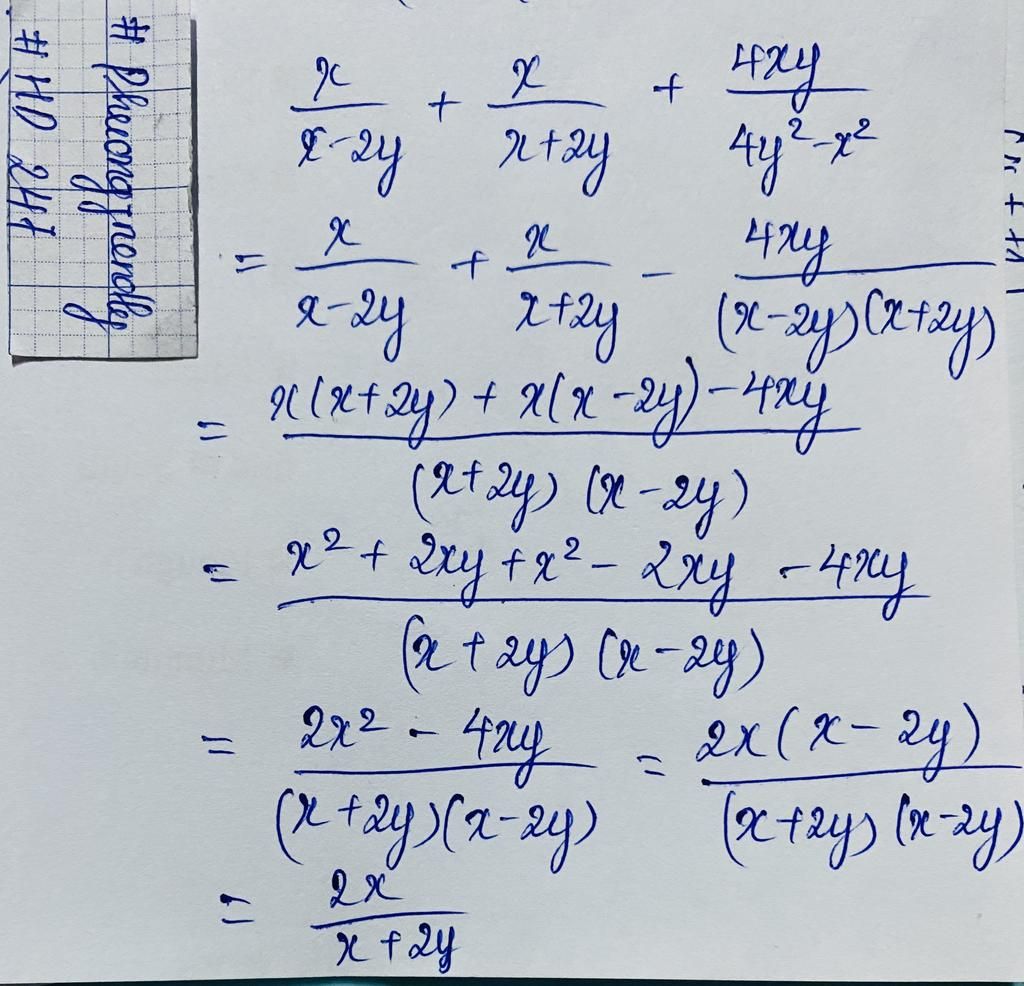 # Phuongnerdly
# HD 247
x/(x-2y) + x/(x+2y) + 4xy/(4y²-x²)
= x/(x-2y) + x/(x+2y) - 4xy/((x-2y)(x+2y))
= (x(x+2y) + x(x-2y) - 4xy)/((x+2y)(x-2y))
= (x² + 2xy + x² - 2xy - 4xy)/((x+2y)(x-2y))
= (2x² - 4xy)/((x+2y)(x-2y)) = (2x(x-2y))/((x+2y)(x-2y))
= 2x/(x+2y)